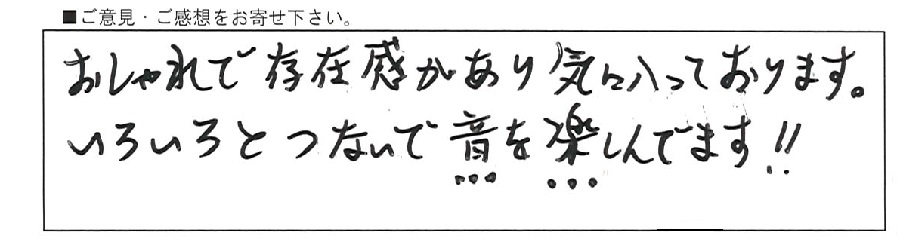 ■ご意見・ご感想をお寄せ下さい。
おしゃれで存在感があり気に入っております。
いろいろとつないで音を楽しんでます!!